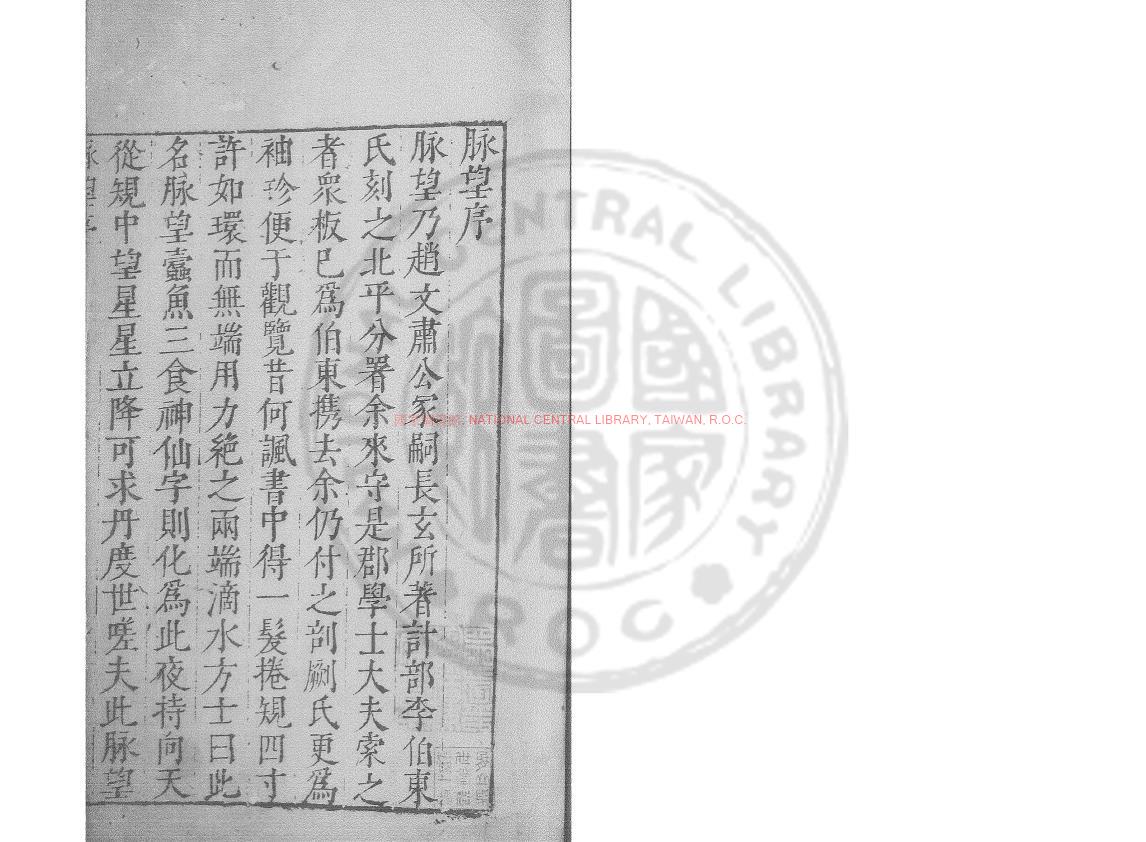 脉望序
脉望乃趙文肅公冢嗣長玄所著計部李伯東
氏刻之北平分署余來守是郡學士大夫索之
者衆板已爲伯東携去余仍付之剖劂氏更爲
袖珍便于觀覽昔何諷書中得一髮捲規四寸
許如環而無端用力絶之兩端滴水方士曰此
名脉望蠹魚三食神仙字則化爲此夜持向天
從規中望星星立降可求丹度世嗟夫此脉望
脉望序
國家圖書館, NATIONAL CENTRAL LIBRARY, TAIWAN, R.O.C.
NATIONAL CENTRAL LIBRARY
ROC
國家圖書